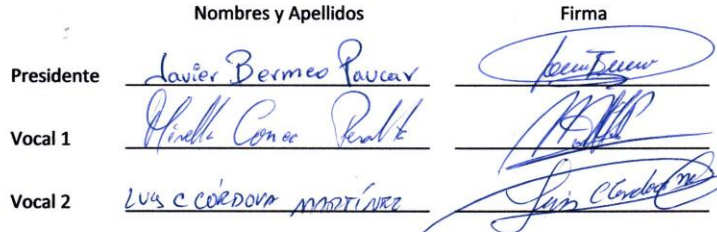 Nombres y Apellidos Firma
Presidente Javier Bermeo Paucar
Vocal 1 Mirella Peralta
Vocal 2 LUIS C CÓRDOVA MARTÍNEZ Luis C Cordova M